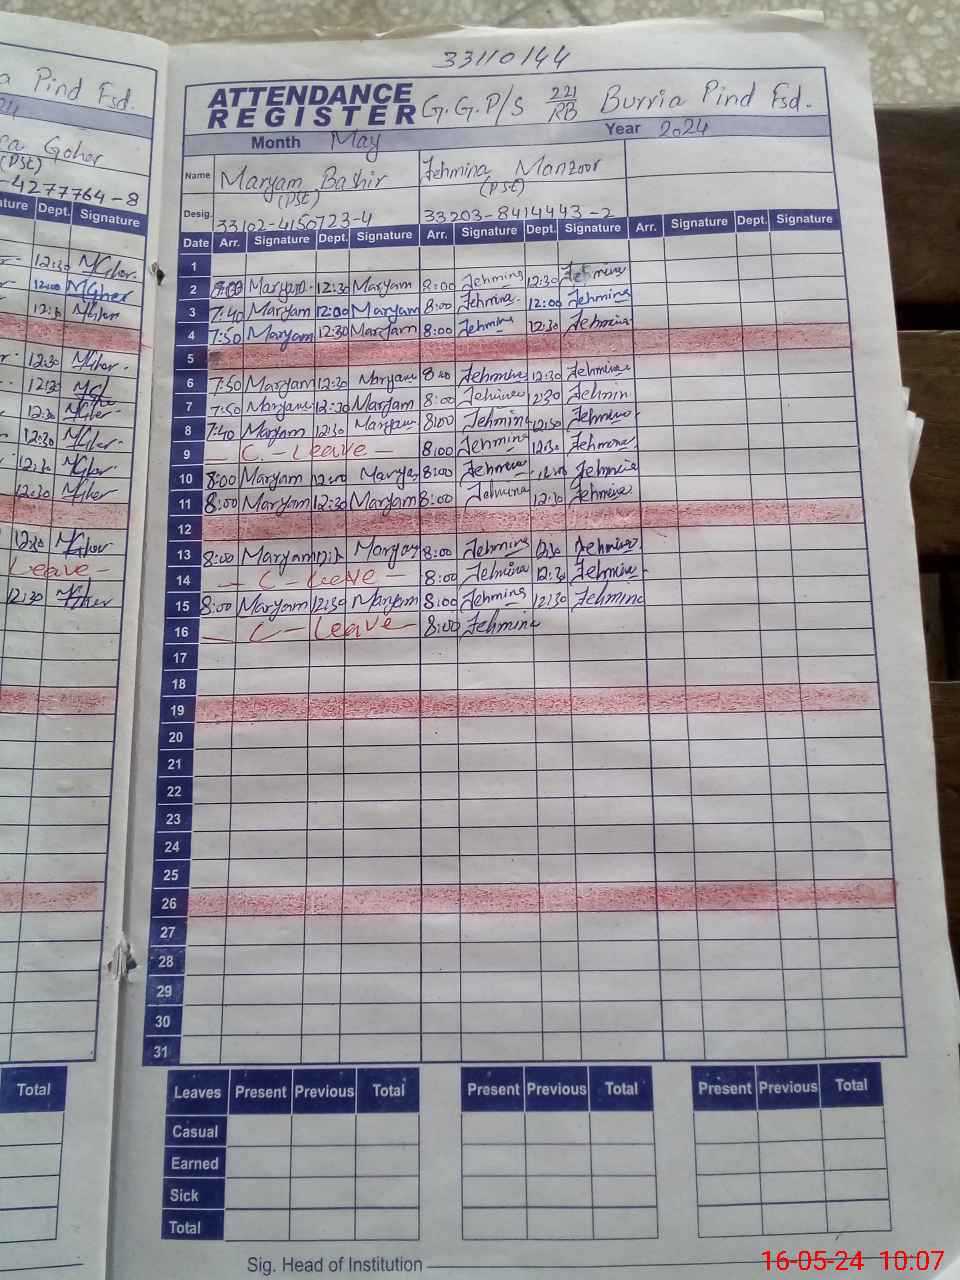 33110144
a Pind Fsd.
ATTENDANCE
REGISTER G.G.P/S 221/RB Burria Pind Fsd.
Month May Year 2024
Goher
(PST)
-4277764-8
Name Maryam Bashir Tehmina Manzoor
(PST) (PST)
Desig. 33102-4150723-4 33203-8414443-2
ature Dept. Signature
Date Arr. Signature Dept. Signature Arr. Signature Dept. Signature Arr. Signature Dept. Signature
1
12:30 MGher
2 8:00 Maryam 12:30 Maryam 8:00 Tehmina 12:30 Tehmina
12:00 MGher
3 7:40 Maryam 12:00 Maryam 8:00 Tehmina 12:00 Tehmina
4 7:50 Maryam 12:30 Maryam 8:00 Tehmina 12:30 Tehmina
5
12:30 MGher
6 7:50 Maryam 12:30 Maryam 8:00 Tehmina 12:30 Tehmina
7 7:50 Maryam 12:30 Maryam 8:00 Tehmina 12:30 Tehmin
12:30
8 7:40 Maryam 12:30 Maryam 8:00 Tehmina 12:30 Tehmina
12:30 MGher
9 — C.- Leave — 8:00 Tehmina 12:30 Tehmina
12:30 MGher
10 8:00 Maryam Maryam 8:00 Tehmina Tehmina
12:30 MGher
11 8:00 Maryam 12:30 Maryam 8:00 Tehmina 12:30 Tehmina
12
12:30 MGher
13 8:00 Maryam Maryam 8:00 Tehmina 12:30 Tehmina
Leave -
14 — C - Leave — 8:00 Tehmina 12:30 Tehmina
12:30 MGher
15 8:00 Maryam 12:30 Maryam 8:00 Tehmina 12:30 Tehmina
16 — C - Leave — 8:00 Tehmina
17
18
19
20
21
22
23
24
25
26
27
28
29
30
31
Total
Leaves Present Previous Total Present Previous Total Present Previous Total
Casual
Earned
Sick
Total
Sig. Head of Institution
16-05-24 10:07